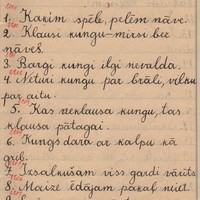 1. Kaķim spēle, pelēm nāve.
2. Klausi kungu – mirsi bez
nāves.
3. Bargi kungi ilgi nevalda.
4. Neturi kungu par brāli, vilku
par aitu.
5. Kas neklausa kungu, tas
klausa pātagai.
6. Kungs dara ar kalpu kā
grib.
7. Izsalkušam viss gardi vārīts
8. Maize ēdājam pakaļ